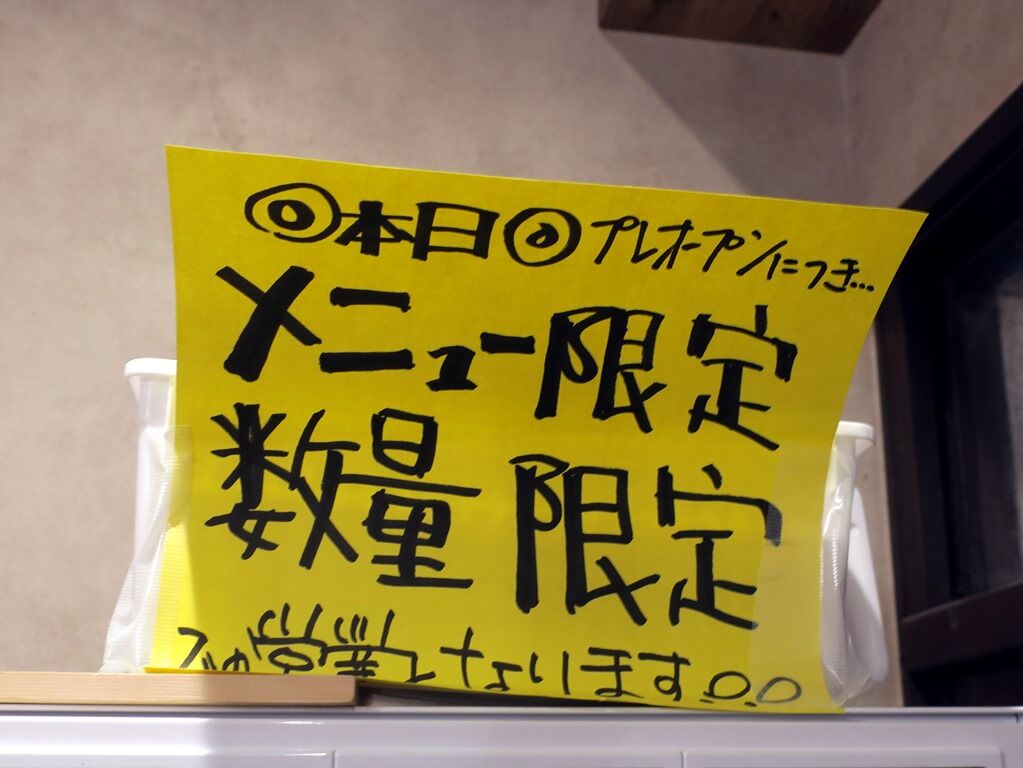 ◎本日◎プレオープンにつき...
メニュー限定
数量限定
での営業となります。。